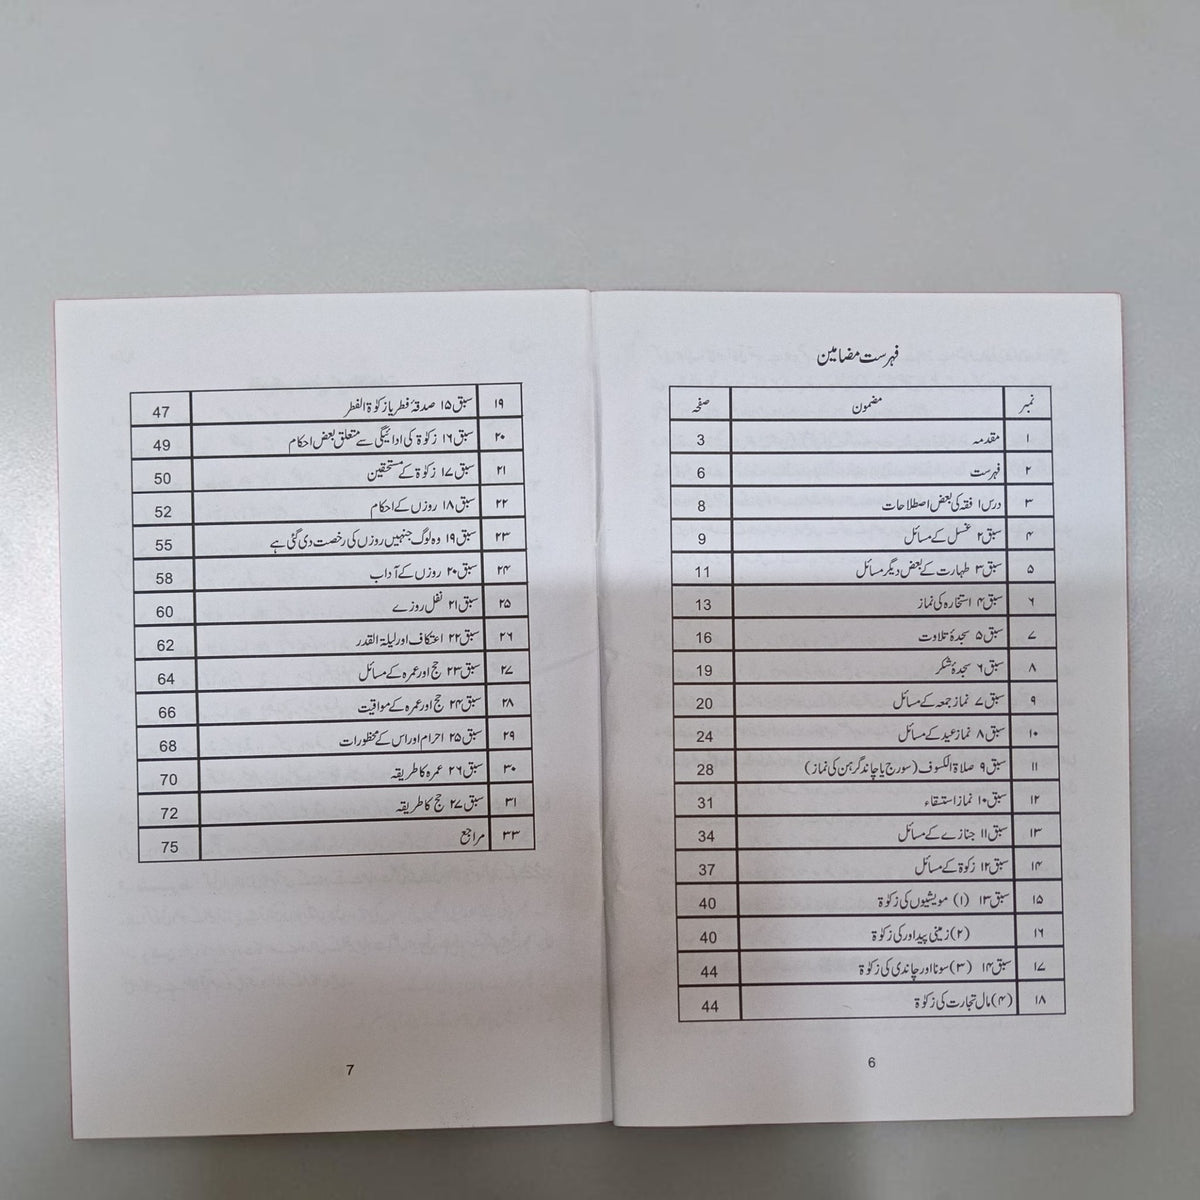 فہرست مضامین
نمبر مضمون صفحہ
۱ مقدمہ 3
۲ فہرست 6
۳ درس۱ فقہ کی بعض اصطلاحات 8
۴ سبق۲ غسل کے مسائل 9
۵ سبق۳ طہارت کے بعض دیگر مسائل 11
۶ سبق۴ استخارہ کی نماز 13
۷ سبق۵ سجدۂ تلاوت 16
۸ سبق۶ سجدۂ شکر 19
۹ سبق۷ نماز جمعہ کے مسائل 20
۱۰ سبق۸ نماز عید کے مسائل 24
۱۱ سبق۹ صلاۃ الکسوف (سورج یا چاند گرہن کی نماز) 28
۱۲ سبق۱۰ نماز استسقاء 31
۱۳ سبق۱۱ جنازے کے مسائل 34
۱۴ سبق۱۲ زکوۃ کے مسائل 37
۱۵ سبق۱۳ (۱) مویشیوں کی زکوٰۃ 40
۱۶ (۲) زمینی پیداور کی زکوٰۃ 40
۱۷ سبق۱۴ (۳) سونا اور چاندی کی زکوٰۃ 44
۱۸ (۴) مال تجارت کی زکوٰۃ 44
6
۱۹ سبق۱۵ صدقۂ فطر یا زکوٰۃ الفطر 47
۲۰ سبق۱۶ زکوٰۃ کی ادائیگی سے متعلق بعض احکام 49
۲۱ سبق۱۷ زکوٰۃ کے مستحقین 50
۲۲ سبق۱۸ روزں کے احکام 52
۲۳ سبق۱۹ وہ لوگ جنہیں روزں کی رخصت دی گئی ہے 55
۲۴ سبق۲۰ روزں کے آداب 58
۲۵ سبق۲۱ نفل روزے 60
۲۶ سبق۲۲ اعتکاف اور لیلۃ القدر 62
۲۷ سبق۲۳ حج اور عمرہ کے مسائل 64
۲۸ سبق۲۴ حج اور عمرہ کے مواقیت 66
۲۹ سبق۲۵ احرام اور اس کے محظورات 68
۳۰ سبق۲۶ عمرہ کا طریقہ 70
۳۱ سبق۲۷ حج کا طریقہ 72
۳۳ مراجع 75
7